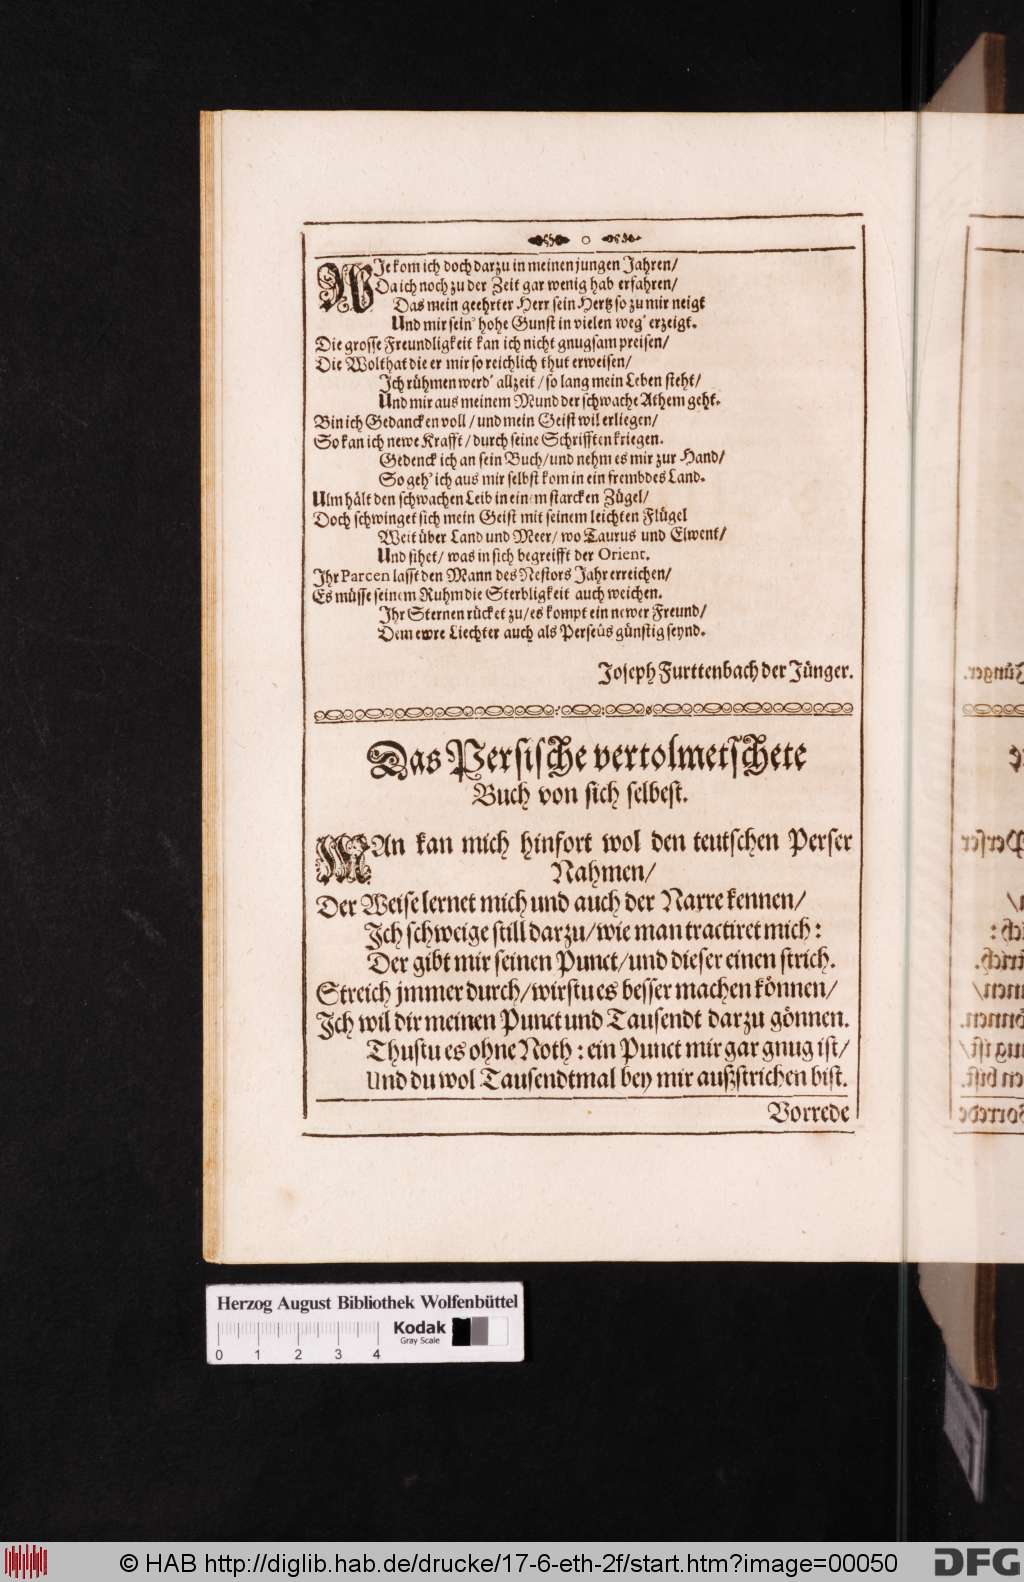 WJe kom ich doch darzu in meinen jungen Jahren/
Da ich noch zu der Zeit gar wenig hab erfahren/
Das mein geehrter Herr sein Hertz so zu mir neigt
Und mir sein' hohe Gunst in vielen weg' erzeigt.
Die grosse Freundligkeit kan ich nicht gnugsam preisen/
Die Wolthat die er mir so reichlich thut erweisen/
Ich rühmen werd' allzeit / so lang mein Leben steht/
Und mir aus meinem Mund der schwache Athem geht.
Bin ich Gedancken voll / und mein Geist wil erliegen/
So kan ich newe Krafft / durch seine Schrifften kriegen.
Gedenck ich an sein Buch/und nehm es mir zur Hand/
So geh' ich aus mir selbst kom in ein frembdes Land.
Ulm hält den schwachen Leib in einem starcken Zügel/
Doch schwinget sich mein Geist mit seinem leichten Flügel
Weit über Land und Meer/ wo Taurus und Elwent/
Und sihet/ was in sich begreifft der Orient.
Ihr Parcen lasst den Mann des Nestors Jahr erreichen/
Es müsse seinem Ruhm die Sterbligkeit auch weichen.
Ihr Sternen rücket zu/es kompt ein newer Freund/
Dem ewre Liechter auch als Perseüs günstig seynd.
Joseph Furttenbach der Jünger.
Das Persische vertolmetschete
Buch von sich selbest.
MAn kan mich hinfort wol den teutschen Perser
Nahmen/
Der Weise lernet mich und auch der Narre kennen/
Ich schweige still darzu/wie man tractiret mich:
Der gibt mir seinen Punct/und dieser einen strich.
Streich jmmer durch/wirstu es besser machen können/
Ich wil dir meinen Punct und Tausendt darzu gönnen.
Thustu es ohne Noth: ein Punct mir gar gnug ist/
Und du wol Tausendtmal bey mir außstrichen bist.
Vorrede
Herzog August Bibliothek Wolfenbüttel
Kodak
Gray Scale
0 1 2 3 4
© HAB http://diglib.hab.de/drucke/17-6-eth-2f/start.htm?image=00050
DFG